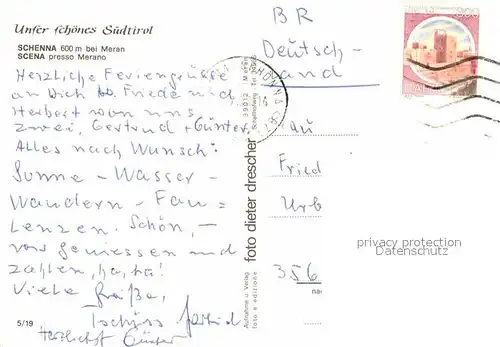 Unser schönes Südtirol
SCHENNA 600 m bei Meran
SCENA presso Merano
Herzliche Feriengrüsse
an Dich lb. Friede und
Herbert von uns
zwei, Gertrud + Günter.
Alles nach Wunsch:
Sonne - Wasser -
Wandern - Fau =
lenzen. Schön, -
vors Geniessen und
zahlen, ha, ha!
Viele Grüße,
Tschüss
Herzlichst Günter
5/19
foto dieter drescher
Aufnahme u. Verlag
foto e edizione
39012 Meran
BR
Deutsch-
land
Fried
Urb
356
privacy protection
Datenschutz